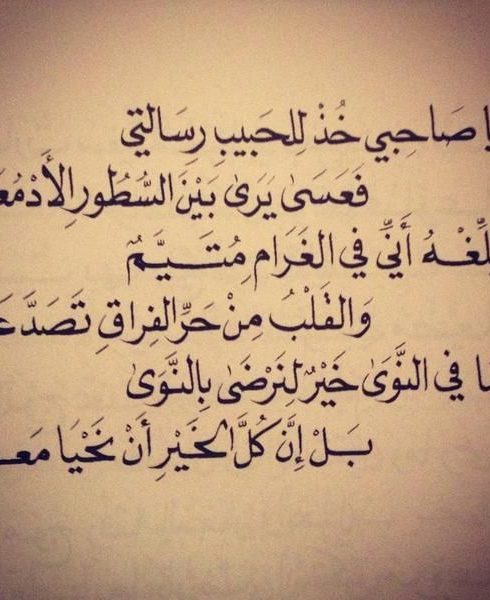 صَاحِبِي خُذْ لِلحَبِيبِ رِسَالَتِي
فَعَسَىٰ يَرَىٰ بَيْنَ السُّطُورِ الأَدْمُعَ
لِّغْهُ أَنِّي فِي الغَرَامِ مُتَيَّمٌ
وَالقَلْبُ مِنْ حَرِّ الفِرَاقِ تَصَدَّعَ
ا فِي النَّوَىٰ خَيْرٌ لِنَرْضَىٰ بِالنَّوَىٰ
بَلْ إِنَّ كُلَّ الخَيْرِ أَنْ نَحْيَا مَعَـ